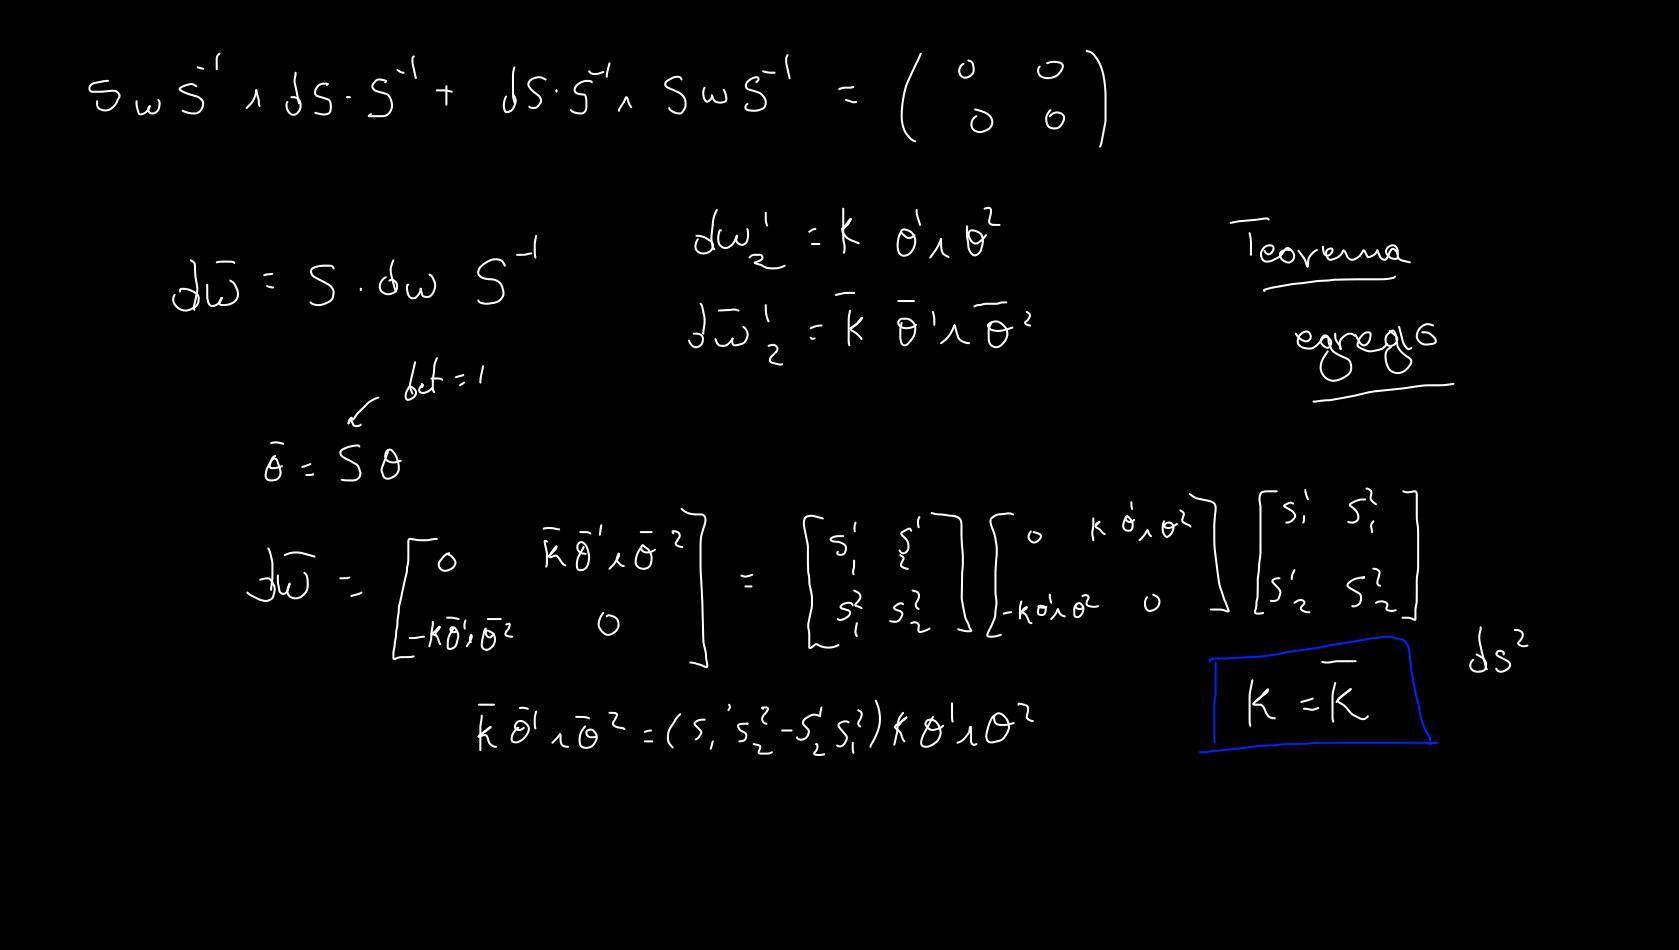 S ω S⁻¹ ∧ dS · S⁻¹ + dS · S⁻¹ ∧ S ω S⁻¹ = ( 0 0 ; 0 0 )
dω̄ = S · dω S⁻¹
dω¹₂ = K θ¹ ∧ θ²
dω̄¹₂ = K̄ θ̄¹ ∧ θ̄²
Teorema
egregio
det = 1
θ̄ = S θ
dω̄ = [ 0 K̄ θ̄¹ ∧ θ̄² ; -K θ̄¹ ∧ θ̄² 0 ] = [ S¹₁ S¹₂ ; S²₁ S²₂ ] [ 0 K θ¹ ∧ θ² ; -K θ¹ ∧ θ² 0 ] [ S¹₁ S²₁ ; S¹₂ S²₂ ]
K̄ θ̄¹ ∧ θ̄² = (S¹₁ S²₂ - S¹₂ S²₁) K θ¹ ∧ θ²
K = K̄
ds²